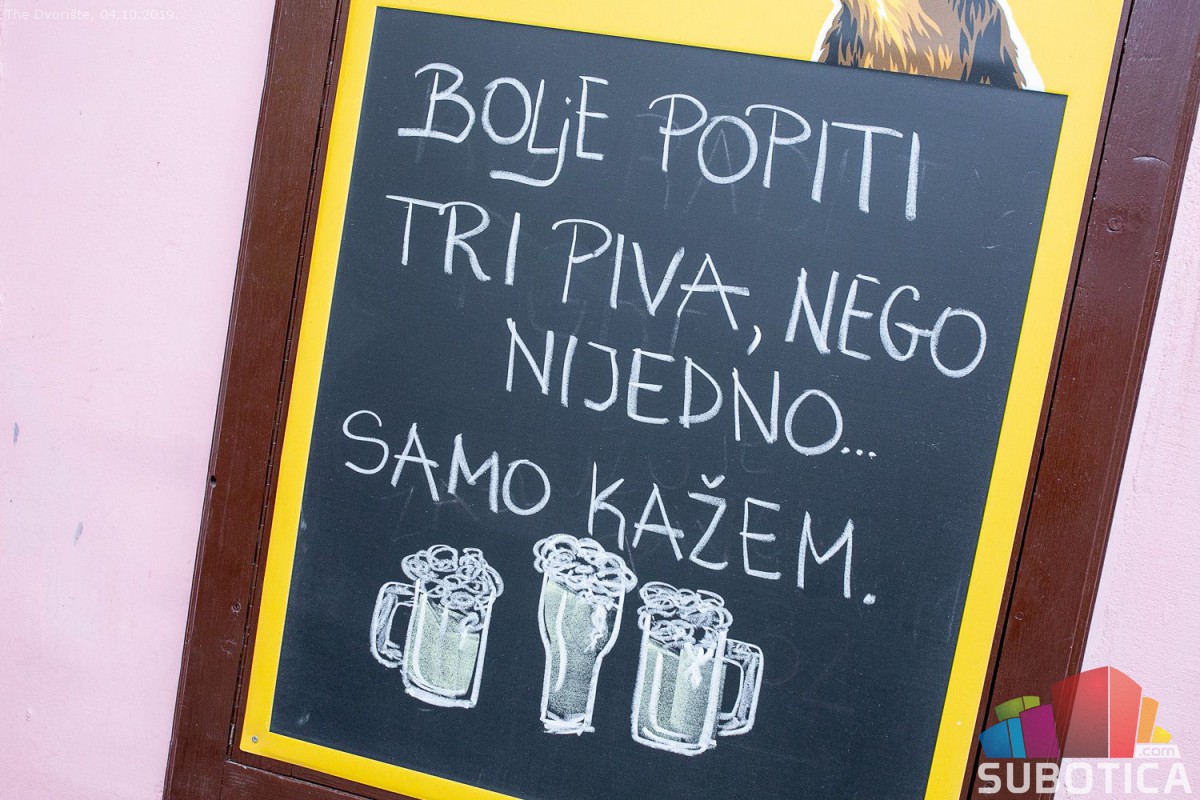 The Dvorište, 04.10.2019.
BOLjE POPITI
TRI PIVA, NEGO
NIJEDNO...
SAMO KAŽEM.
.com
SUBOTICA